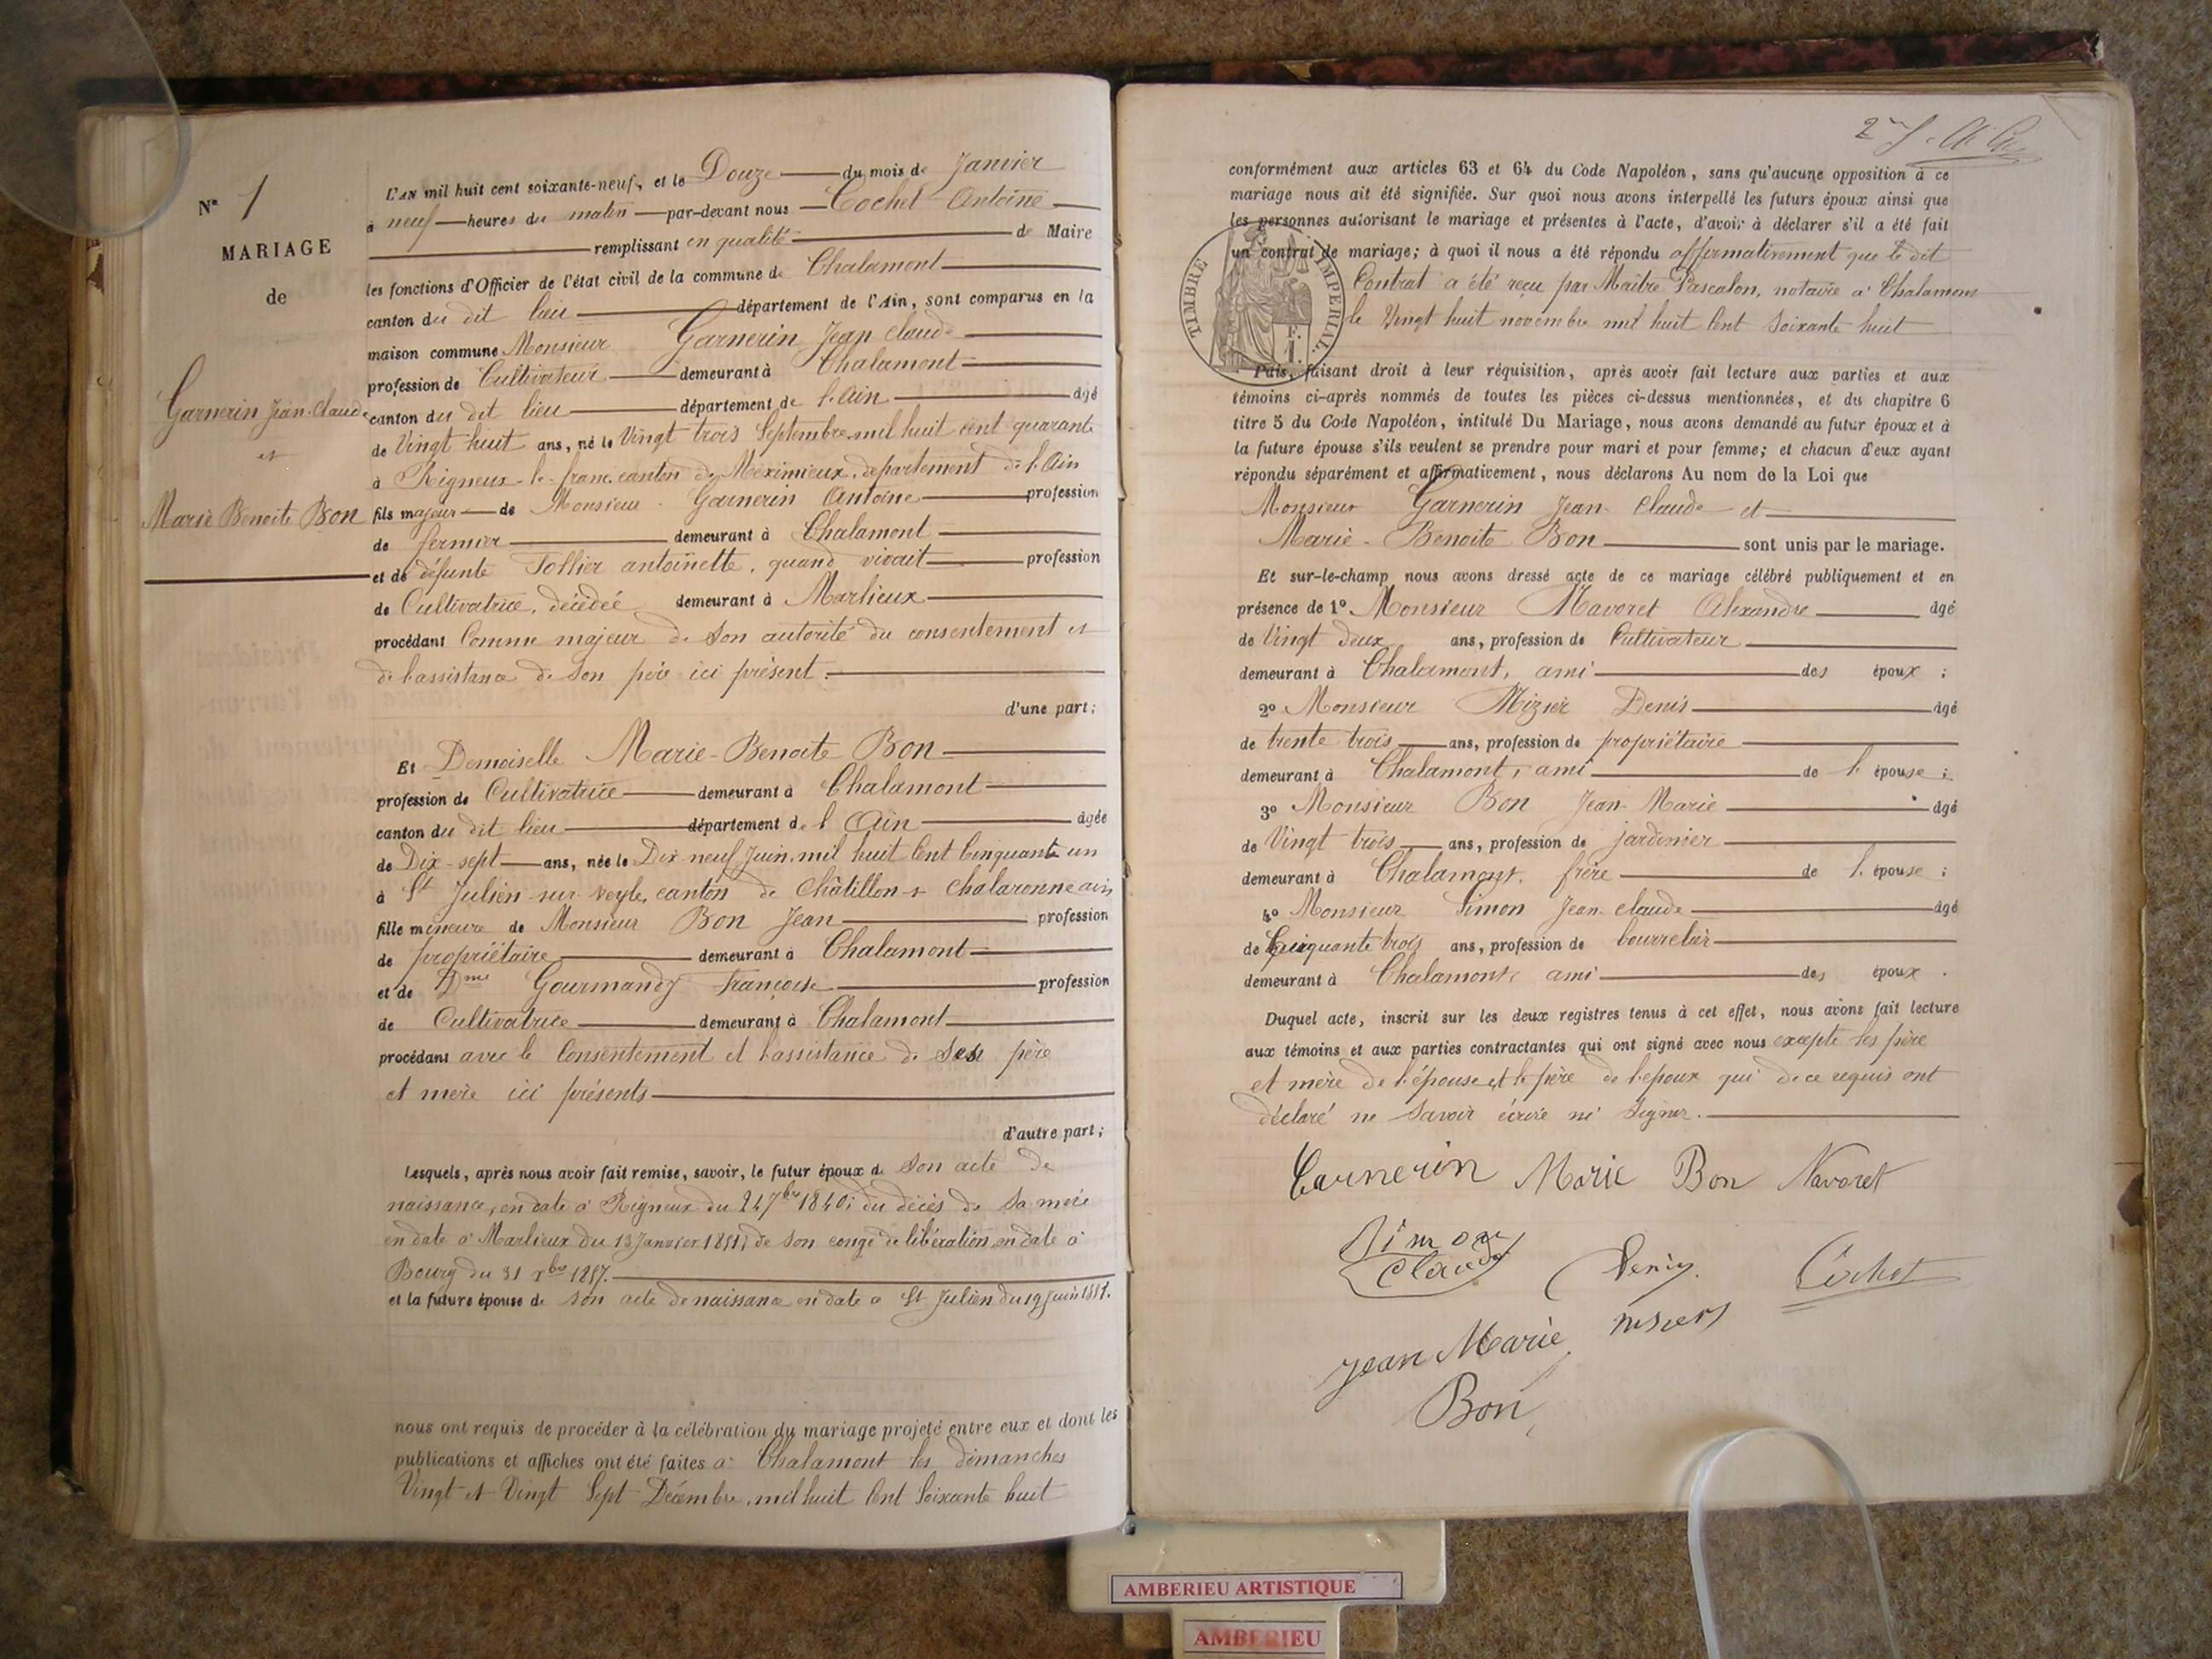 N° 1
MARIAGE
de
Garnerin Jean Claude
et
Marie Benoite Bon
L'AN mil huit cent soixante-neuf, et le Douze du mois de Janvier
à neuf heures du matin par-devant nous Cochet Antoine
remplissant en qualité de Maire
les fonctions d'Officier de l'état civil de la commune de Chalamont
canton du dit lieu département de l'Ain, sont comparus en la
maison commune Monsieur Garnerin Jean Claude
profession de Cultivateur demeurant à Chalamont
canton du dit lieu département de l'Ain âgé
de Vingt huit ans, né le Vingt trois Septembre mil huit cent quarante
à Rigneux-le-franc, canton de Meximieux, département de l'Ain
fils majeur de Monsieur Garnerin Antoine profession
de fermier demeurant à Chalamont
et de défunte Tollier antoinette, quand vivait profession
de Cultivatrice, décédée demeurant à Marlieux
procédant Comme majeur de Son autorité du consentement et
de l'assistance de Son père ici présent.
d'une part;
Et Demoiselle Marie-Benoite Bon
profession de Cultivatrice demeurant à Chalamont
canton du dit lieu département de l'Ain âgée
de Dix-sept ans, née le Dix-neuf Juin, mil huit Cent Cinquante un
à St Julien-sur-veyle, canton de Châtillon-s-chalaronne ain
fille mineure de Monsieur Bon Jean profession
de propriétaire demeurant à Chalamont
et de Dme Gourmandy Françoise profession
de Cultivatrice demeurant à Chalamont
procédant avec le Consentement et l'assistance de Ses père
et mère ici présents
d'autre part;
Lesquels, après nous avoir fait remise, savoir, le futur époux de Son acte de
naissance, en date à Rigneux du 24 7bre 1840; du décès de Sa mère
en date à Marlieux du 13 Janvier 1851; de Son congé de libération en date à
Bourg du 31 xbre 1867.
et la future épouse de Son acte de naissance en date à St Julien du 19 Juin 1851.
nous ont requis de procéder à la célébration du mariage projeté entre eux et dont les
publications et affiches ont été faites à Chalamont les dimanches
Vingt et Vingt Sept Décembre, mil huit Cent Soixante huit
conformément aux articles 63 et 64 du Code Napoléon, sans qu'aucune opposition à ce
mariage nous ait été signifiée. Sur quoi nous avons interpellé les futurs époux ainsi que
les personnes autorisant le mariage et présentes à l'acte, d'avoir à déclarer s'il a été fait
un contrat de mariage; à quoi il nous a été répondu affirmativement que le dit
Contrat a été reçu par Maître Pascalon, notaire à Chalamont
le Vingt huit novembre mil huit Cent Soixante huit
TIMBRE IMPERIAL
F.
1.
Puis, faisant droit à leur réquisition, après avoir fait lecture aux parties et aux
témoins ci-après nommés de toutes les pièces ci-dessus mentionnées, et du chapitre 6
titre 5 du Code Napoléon, intitulé Du Mariage, nous avons demandé au futur époux et à
la future épouse s'ils veulent se prendre pour mari et pour femme; et chacun d'eux ayant
répondu séparément et affirmativement, nous déclarons Au nom de la Loi que
Monsieur Garnerin Jean Claude et
Marie-Benoite Bon sont unis par le mariage.
Et sur-le-champ nous avons dressé acte de ce mariage célébré publiquement et en
présence de 1° Monsieur Navoret Alexandre âgé
de Vingt deux ans, profession de Cultivateur
demeurant à Chalamont, ami des époux;
2° Monsieur Mizier Denis âgé
de trente trois ans, profession de propriétaire
demeurant à Chalamont, ami de l'épouse;
3° Monsieur Bon Jean-Marie âgé
de Vingt trois ans, profession de jardinier
demeurant à Chalamont, frère de l'épouse;
4° Monsieur Simon Jean-claude âgé
de Cinquante trois ans, profession de bourrelier
demeurant à Chalamont, ami des époux.
Duquel acte, inscrit sur les deux registres tenus à cet effet, nous avons fait lecture
aux témoins et aux parties contractantes qui ont signé avec nous excepté les père
et mère de l'épouse, et le père de l'époux qui de ce requis ont
déclaré ne Savoir écrire ni Signer.
Garnerin Marie Bon Navoret
Simon
Claude
Denis
Cochet
Jean Marie
Bon
AMBERIEU ARTISTIQUE
AMBERIEU